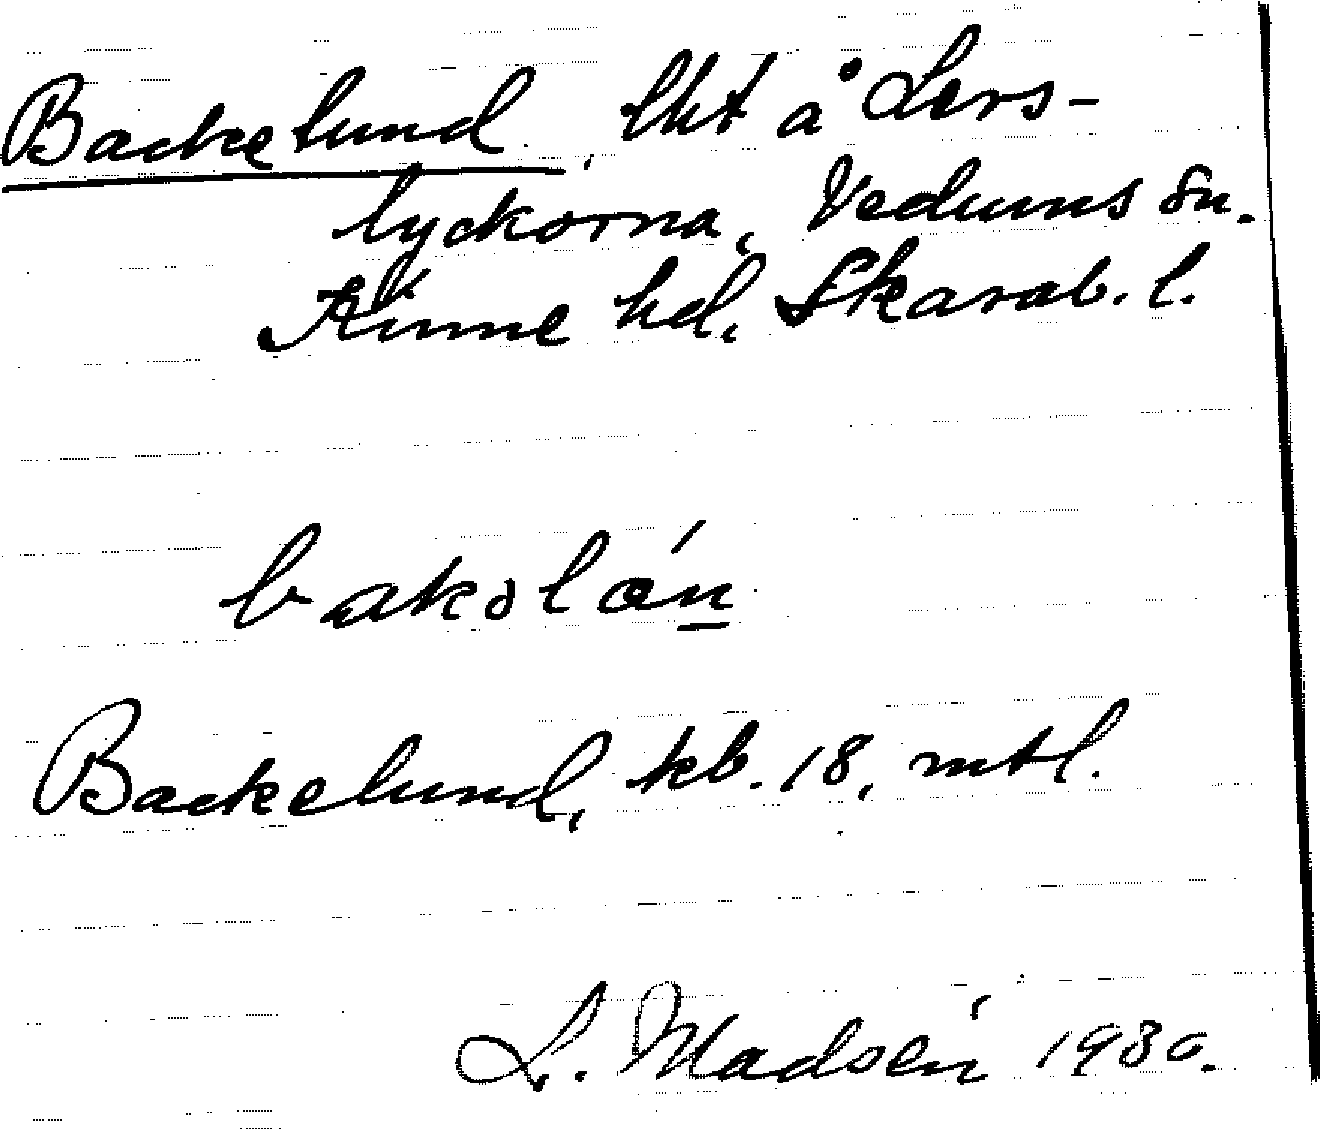 Backelund, lht å Lers-
lyckorna, Vedums sn.
Kinne hd, Skarab. l.
bakolán
Backelund, kb. 18, mtl.
L. Madsén 1930.